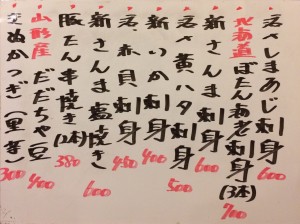 活〆しまあじ刺身 600
北海道ぼたん海老刺身(3本) 700
新さんま刺身 600
活〆黄ハタ刺身 500
新いか刺身 400
活赤貝刺身 450
新さんま塩焼き 600
豚たん串焼き(2本) 380
山形産だだちゃ豆 400
きぬかつぎ(里芋) 300